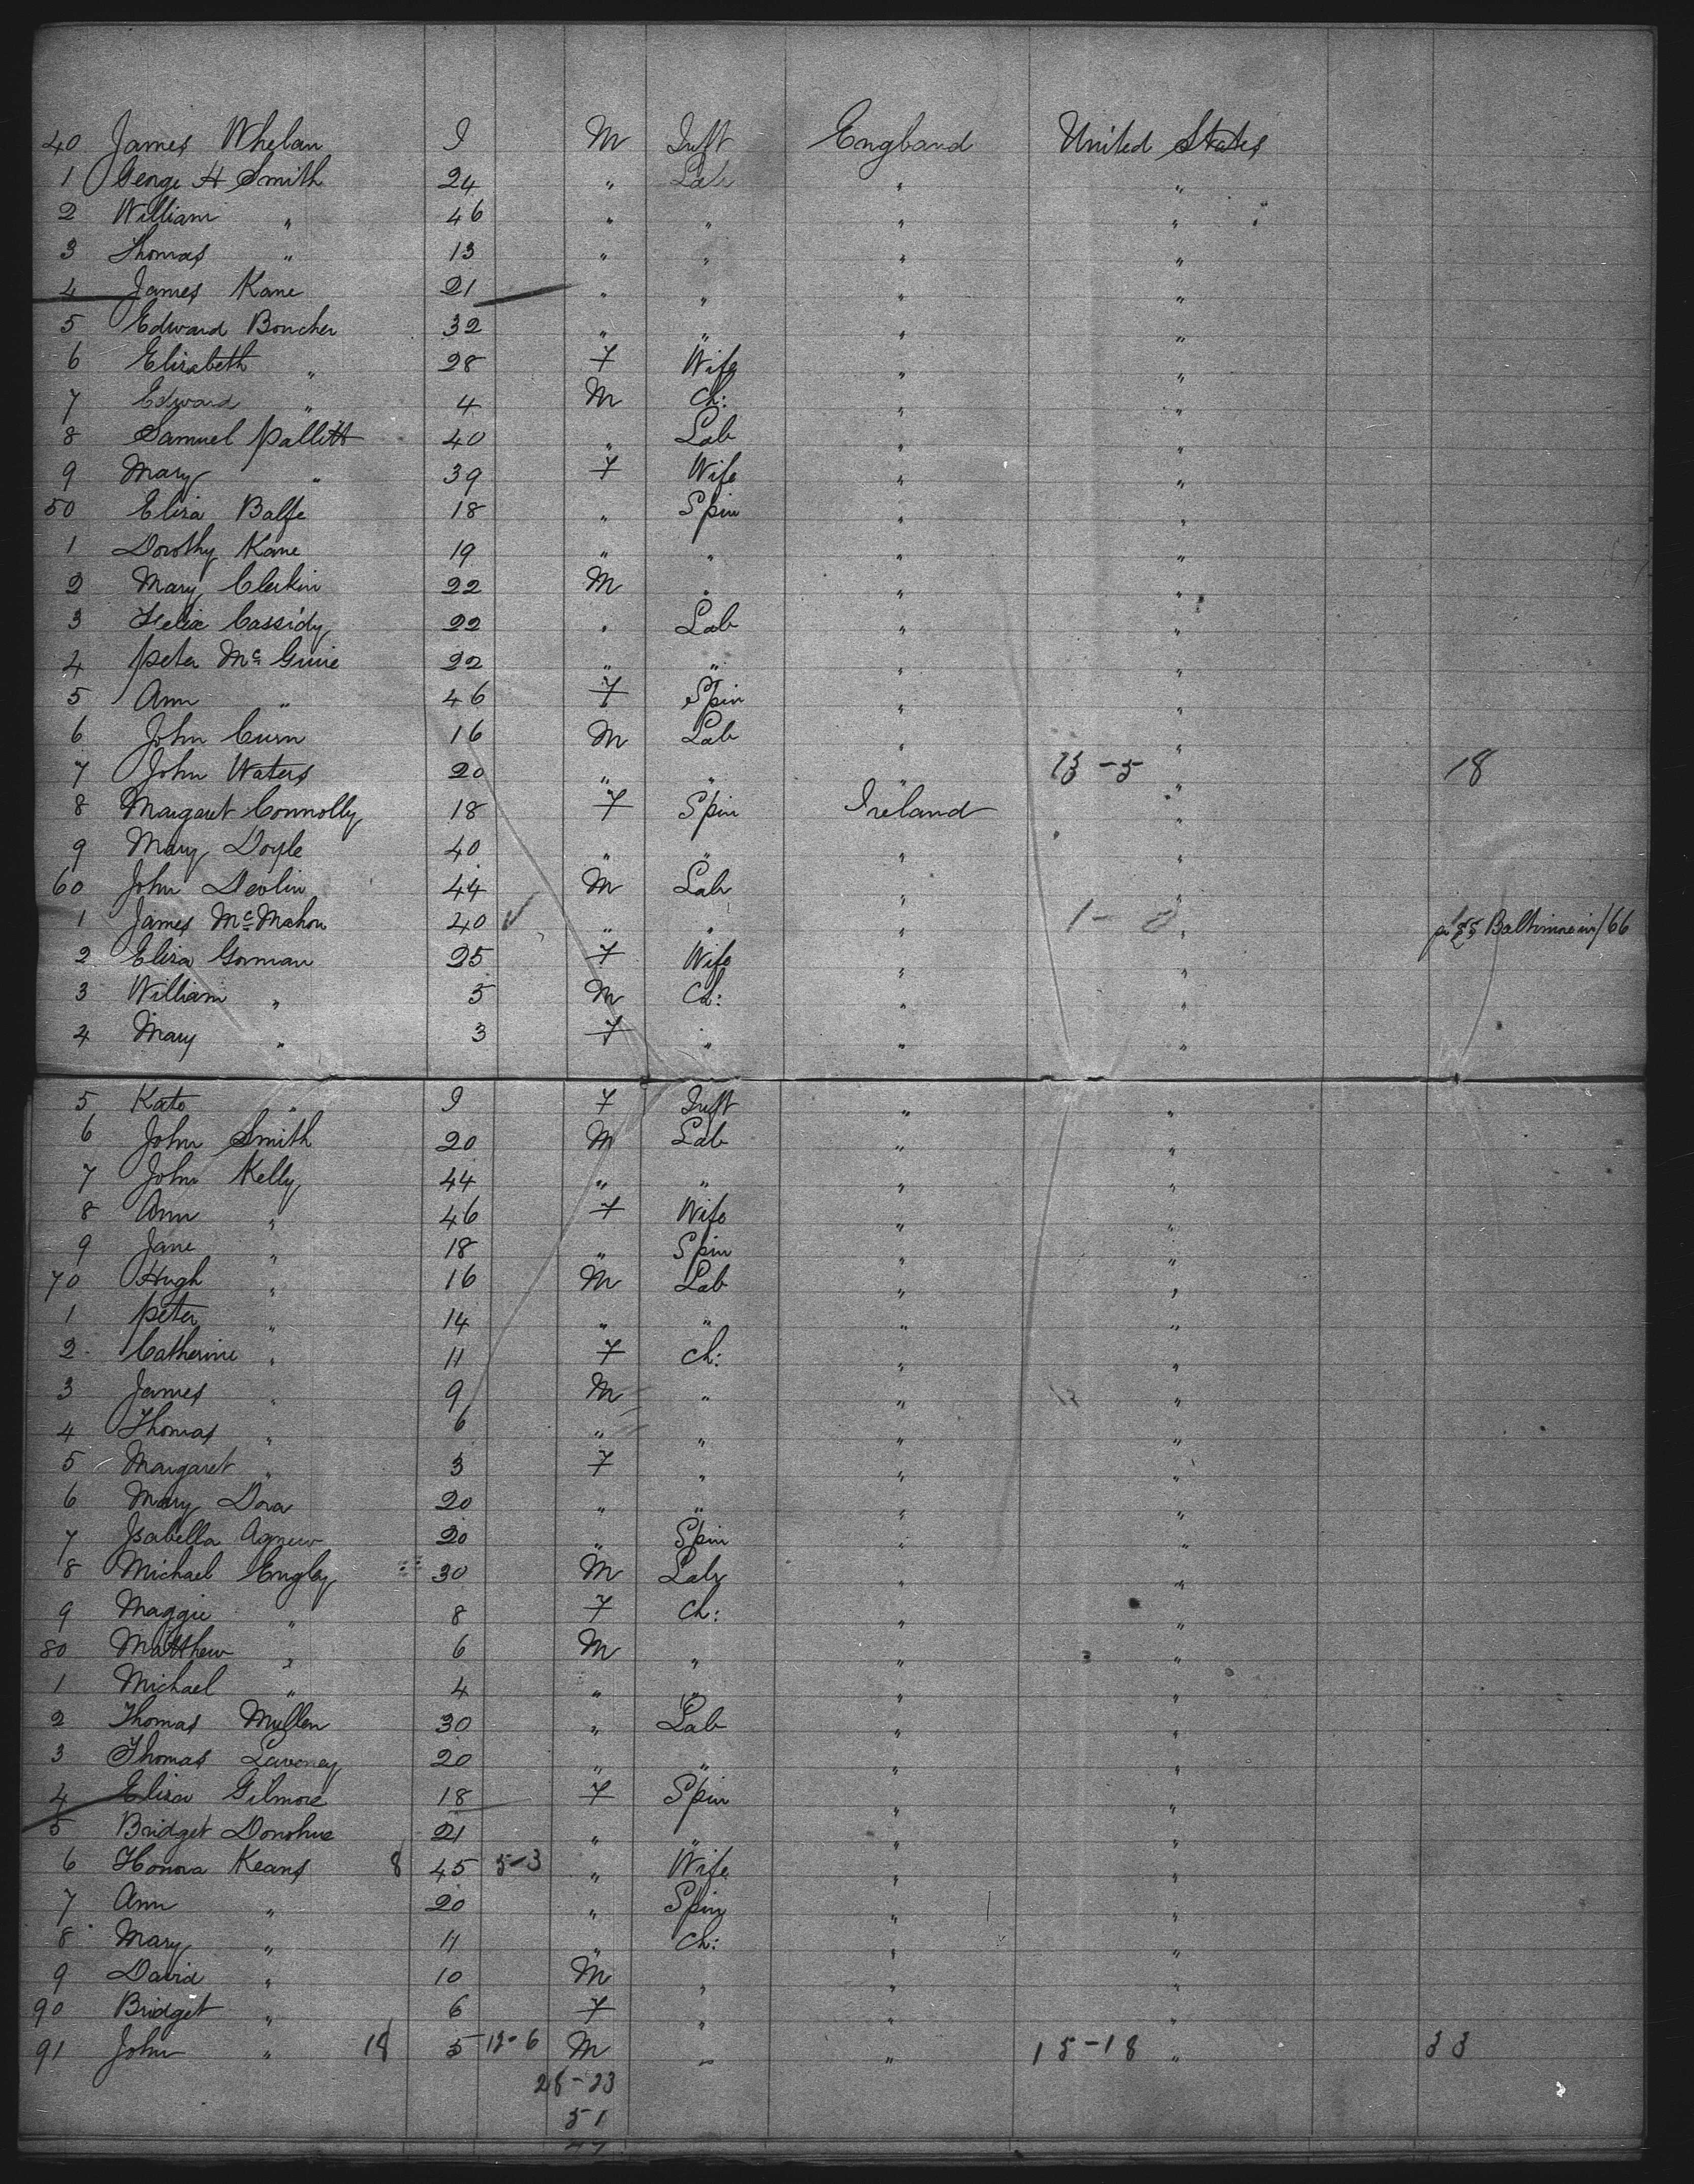 40 James Whelan I M Inft England United States
1 George H Smith 24 " Lab " "
2 William " 46 " " " "
3 Thomas " 13 " " " "
4 James Kane 21 " " " "
5 Edward Boucher 32 " " " "
6 Elizabeth " 28 F Wife " "
7 Edward " 4 M Ch: " "
8 Samuel Pallitt 40 " Lab " "
9 Mary " 39 F Wife " "
50 Eliza Balfe 18 " Spin " "
1 Dorothy Kane 19 " " " "
2 Mary Clerkin 22 M " " "
3 Felix Cassidy 22 " Lab " "
4 Peter Mc Guire 22 " " " "
5 Ann " 46 F Spin " "
6 John Curn 16 M Lab " "
7 John Waters 20 " " " 13-5 " 18
8 Margaret Connolly 18 F Spin Ireland "
9 Mary Doyle 40 " " " "
60 John Devlin 44 M Lab " "
1 James Mc Mahon 40 " " " 1-0 " Baltimore in /66
2 Eliza Gorman 25 F Wife " "
3 William " 5 M Ch: " "
4 Mary " 3 F " " "
5 Kate " I F Inft " "
6 John Smith 20 M Lab " "
7 John Kelly 44 " " " "
8 Ann " 46 F Wife " "
9 Jane " 18 " Spin " "
70 Hugh " 16 M Lab " "
1 Peter " 14 " " " "
2 Catherine " 11 F Ch: " "
3 James " 9 M " " "
4 Thomas " 6 " " " "
5 Margaret " 3 F " " "
6 Mary Dora 20 " " " "
7 Isabella Agnew 20 " Spin " "
8 Michael Engley 30 M Lab " "
9 Maggie " 8 F Ch: " "
80 Matthew " 6 M " " "
1 Michael " 4 " " " "
2 Thomas Mullen 30 " Lab " "
3 Thomas Laveney 20 " " " "
4 Eliza Gilmore 18 F Spin " "
5 Bridget Donohue 21 " " " "
6 Honora Keans 8 45 5-3 " Wife " "
7 Ann " 20 " Spin " "
8 Mary " 11 " Ch: " "
9 David " 10 M " " "
90 Bridget " 6 F " " "
91 John " 18 5 12-6 M " " 15-18 " 33
28-23
51